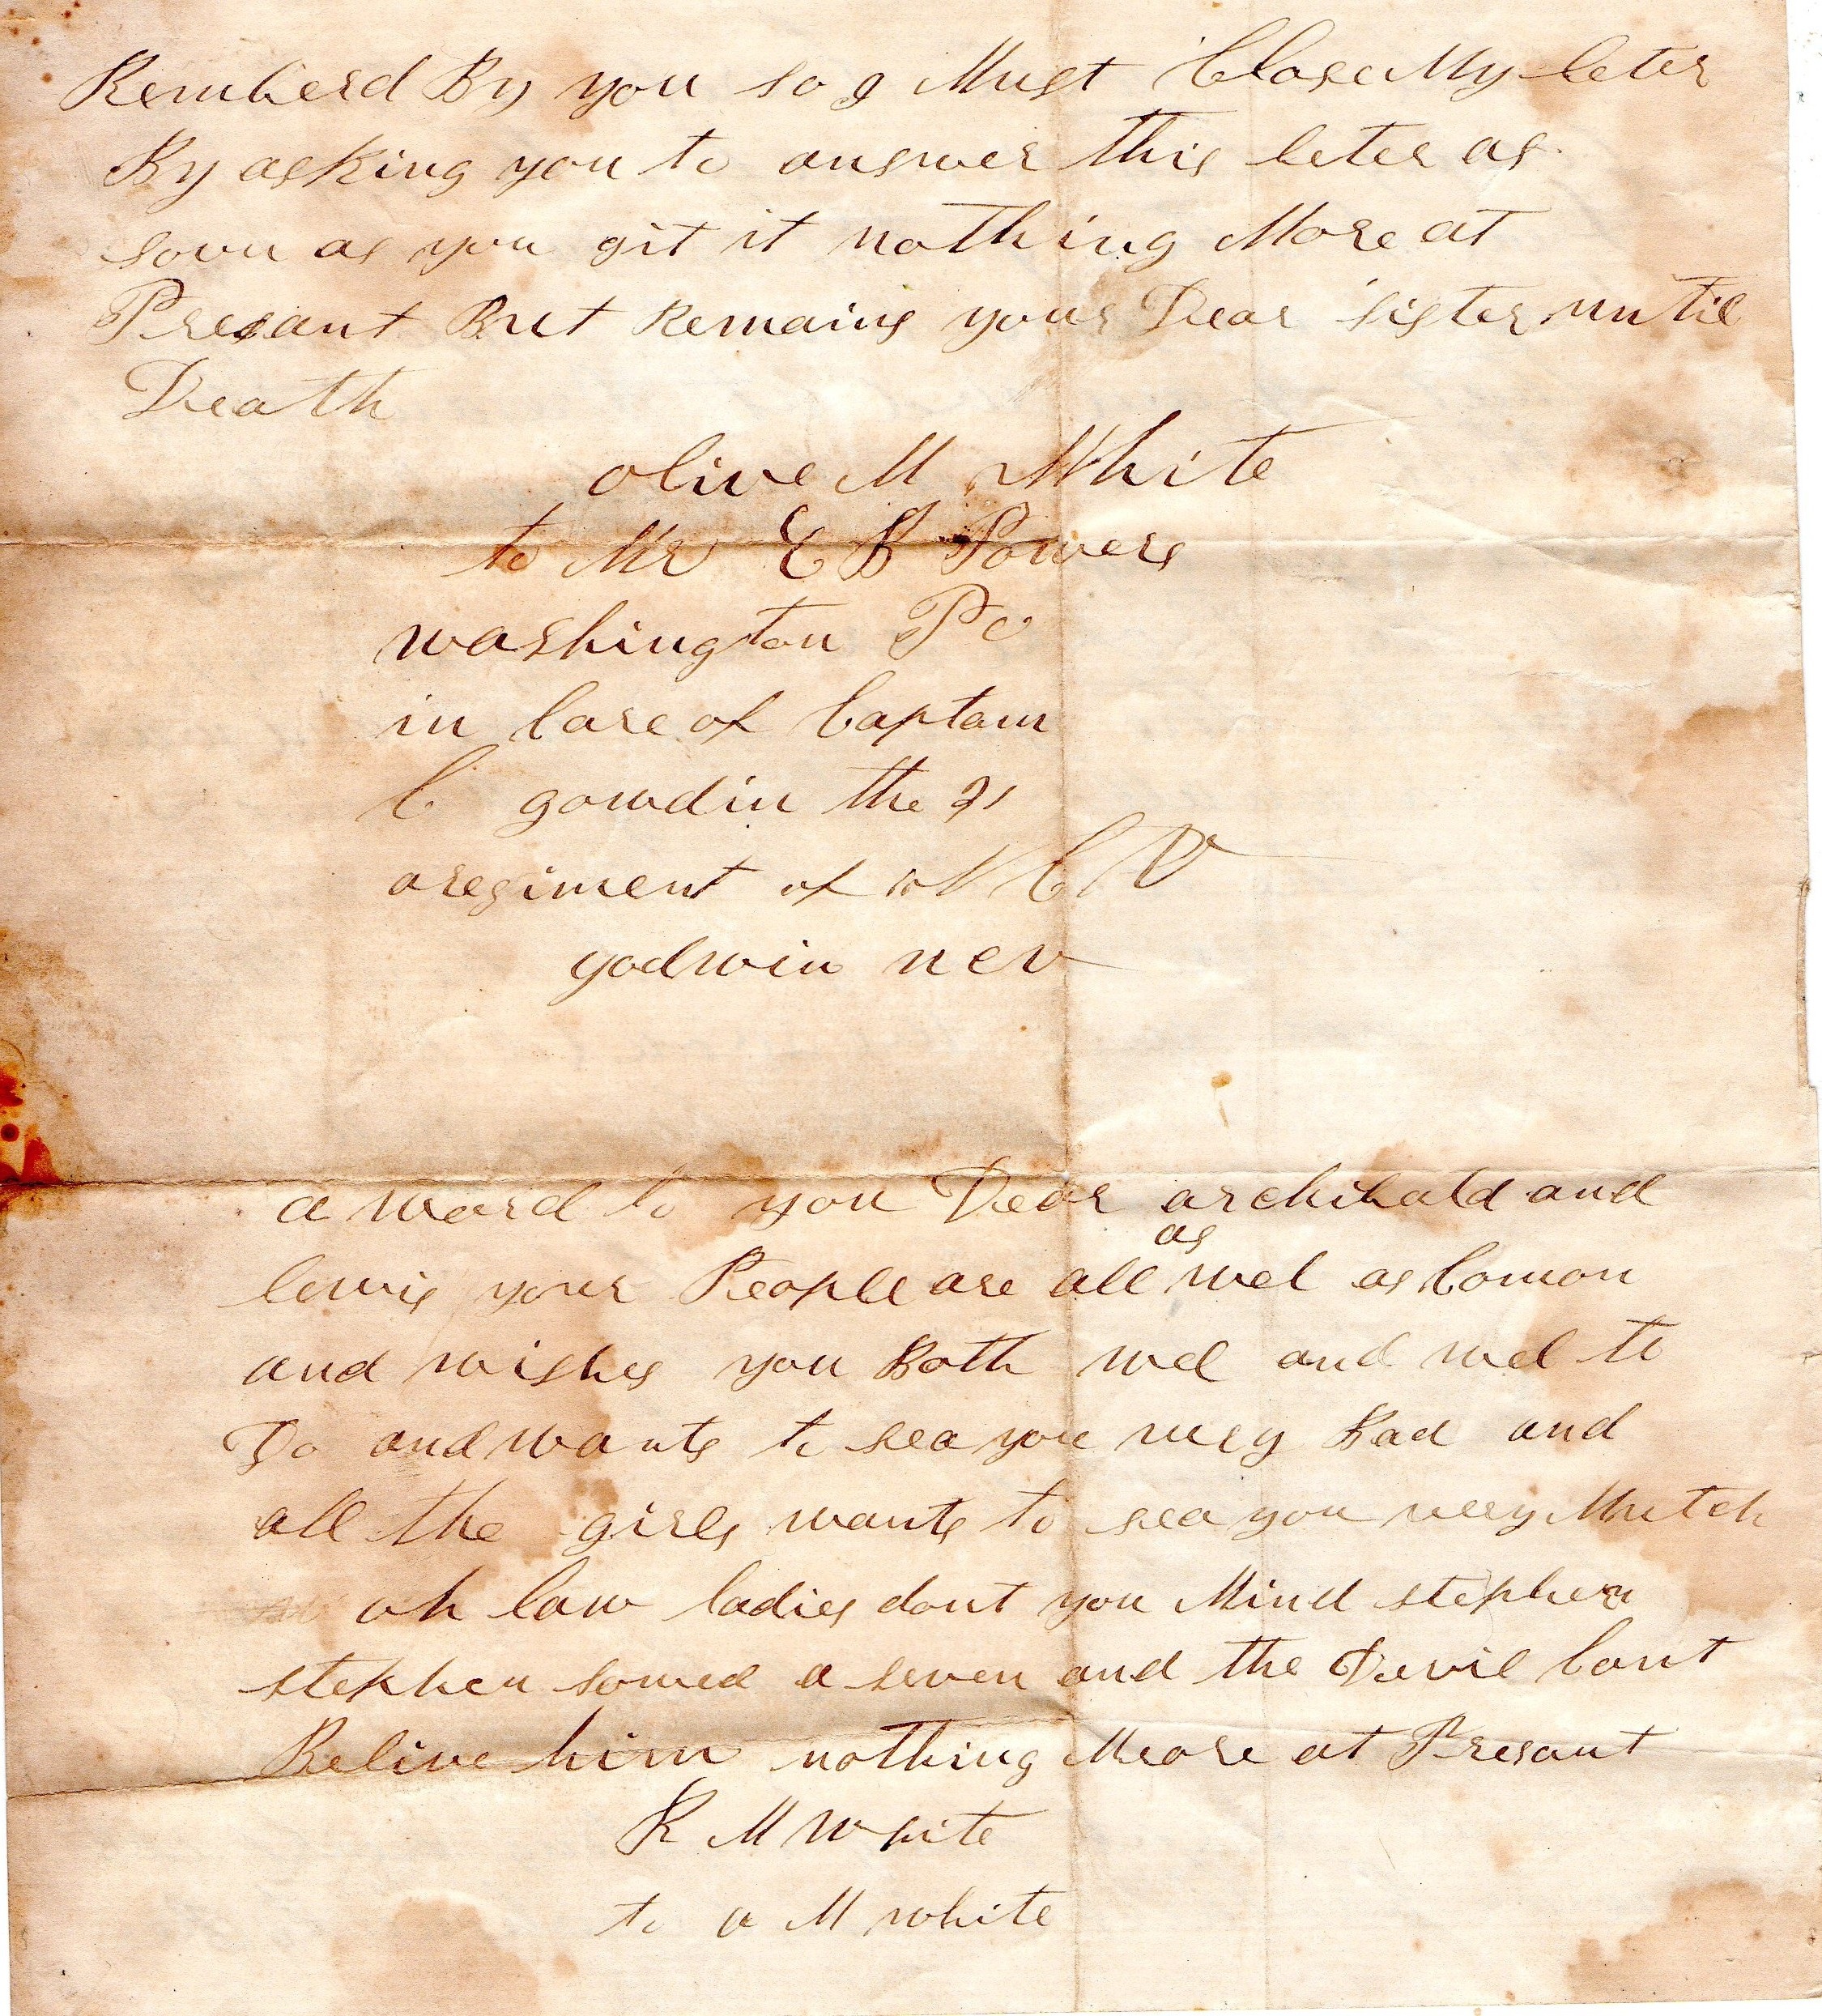 Remberd By you so I Must Close My leter
By asking you to answer this leter as
soon as you git it nothing More at
Presant But Remains your Dear sister until
Death
olive M White
to Mr E B Powers
washington Po
in Care of Captain
C gowdin the 21
aregiment of N C V
godwin ncv
a word to you Dear archibald and
as
lewis your People are all wel as Comon
and wishes you Both wel and wel to
Do and wants to sea you very Bad and
all the girls wants to sea you very Mutch
oh law ladies dont you Mind stephen
stephen sowed a seven and the Devil Cant
Belive him nothing Meore at Presant
R M white
to a M white